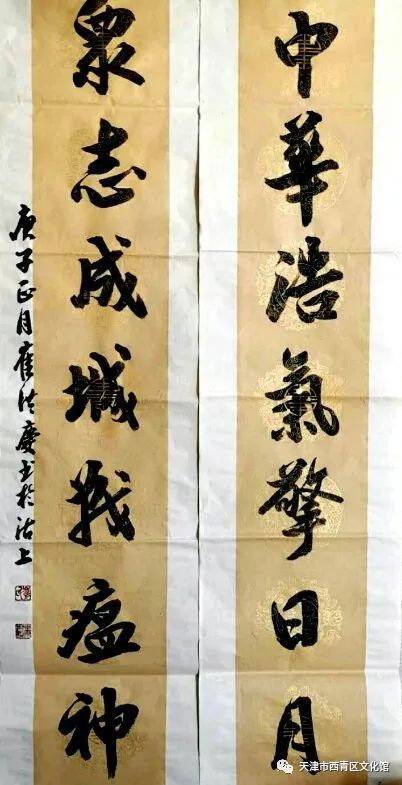 中華浩氣擎日月
眾志成城戰瘟神
庚子正月崔洪慶書於沽上
天津市西青区文化馆